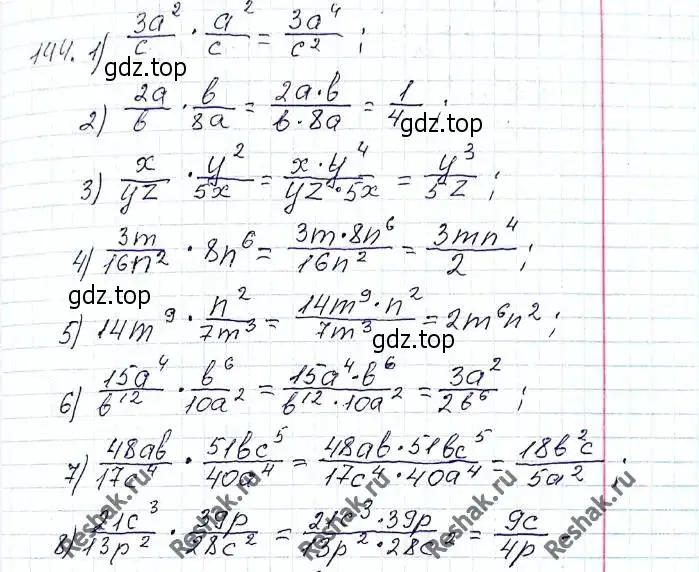 144. 1) 3a²/c · a²/c = 3a⁴/c² ;
gdz.top
2) 2a/b · b/8a = 2a·b/b·8a = 1/4 ;
gdz.top
3) x/yz · y²/5x = x·y⁴/yz·5x = y³/5z ;
4) 3m/16n² · 8n⁶ = 3m·8n⁶/16n² = 3mn⁴/2 ;
gdz.top
5) 14m⁹ · n²/7m³ = 14m⁹·n²/7m³ = 2m⁶n² ;
6) 15a⁴/b¹² · b⁶/10a² = 15a⁴·b⁶/b¹²·10a² = 3a²/2b⁶ ;
7) 48ab/17c⁴ · 51bc⁵/40a⁴ = 48ab·51bc⁵/17c⁴·40a⁴ = 18b²c/5a² ;
8) 21c³/13p² · 39p/28c² = 21c³·39p/13p²·28c² = 9c/4p
Reshak.ru Reshak.ru Reshak.ru Reshak.ru Reshak.ru